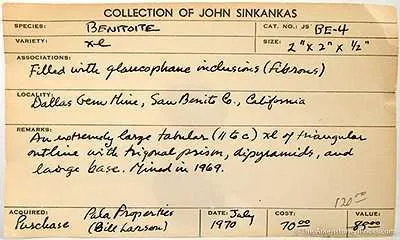 COLLECTION OF JOHN SINKANKAS
SPECIES: BENITOITE CAT. NO.: JS BE-4
VARIETY: xl SIZE: 2" x 2" x 1/2"
ASSOCIATIONS:
Filled with glaucophane inclusions (fibrous)
LOCALITY:
Dallas Gem Mine, San Benito Co., California
REMARKS:
An extremely large tabular (11 to c) xl of triangular
outline with trigonal prism, dipyramids, and
large base. Mined in 1969.
120.00
ACQUIRED: Purchase Pala Properties (Bill Larson) DATE: July 1970 COST: 70.00 VALUE: